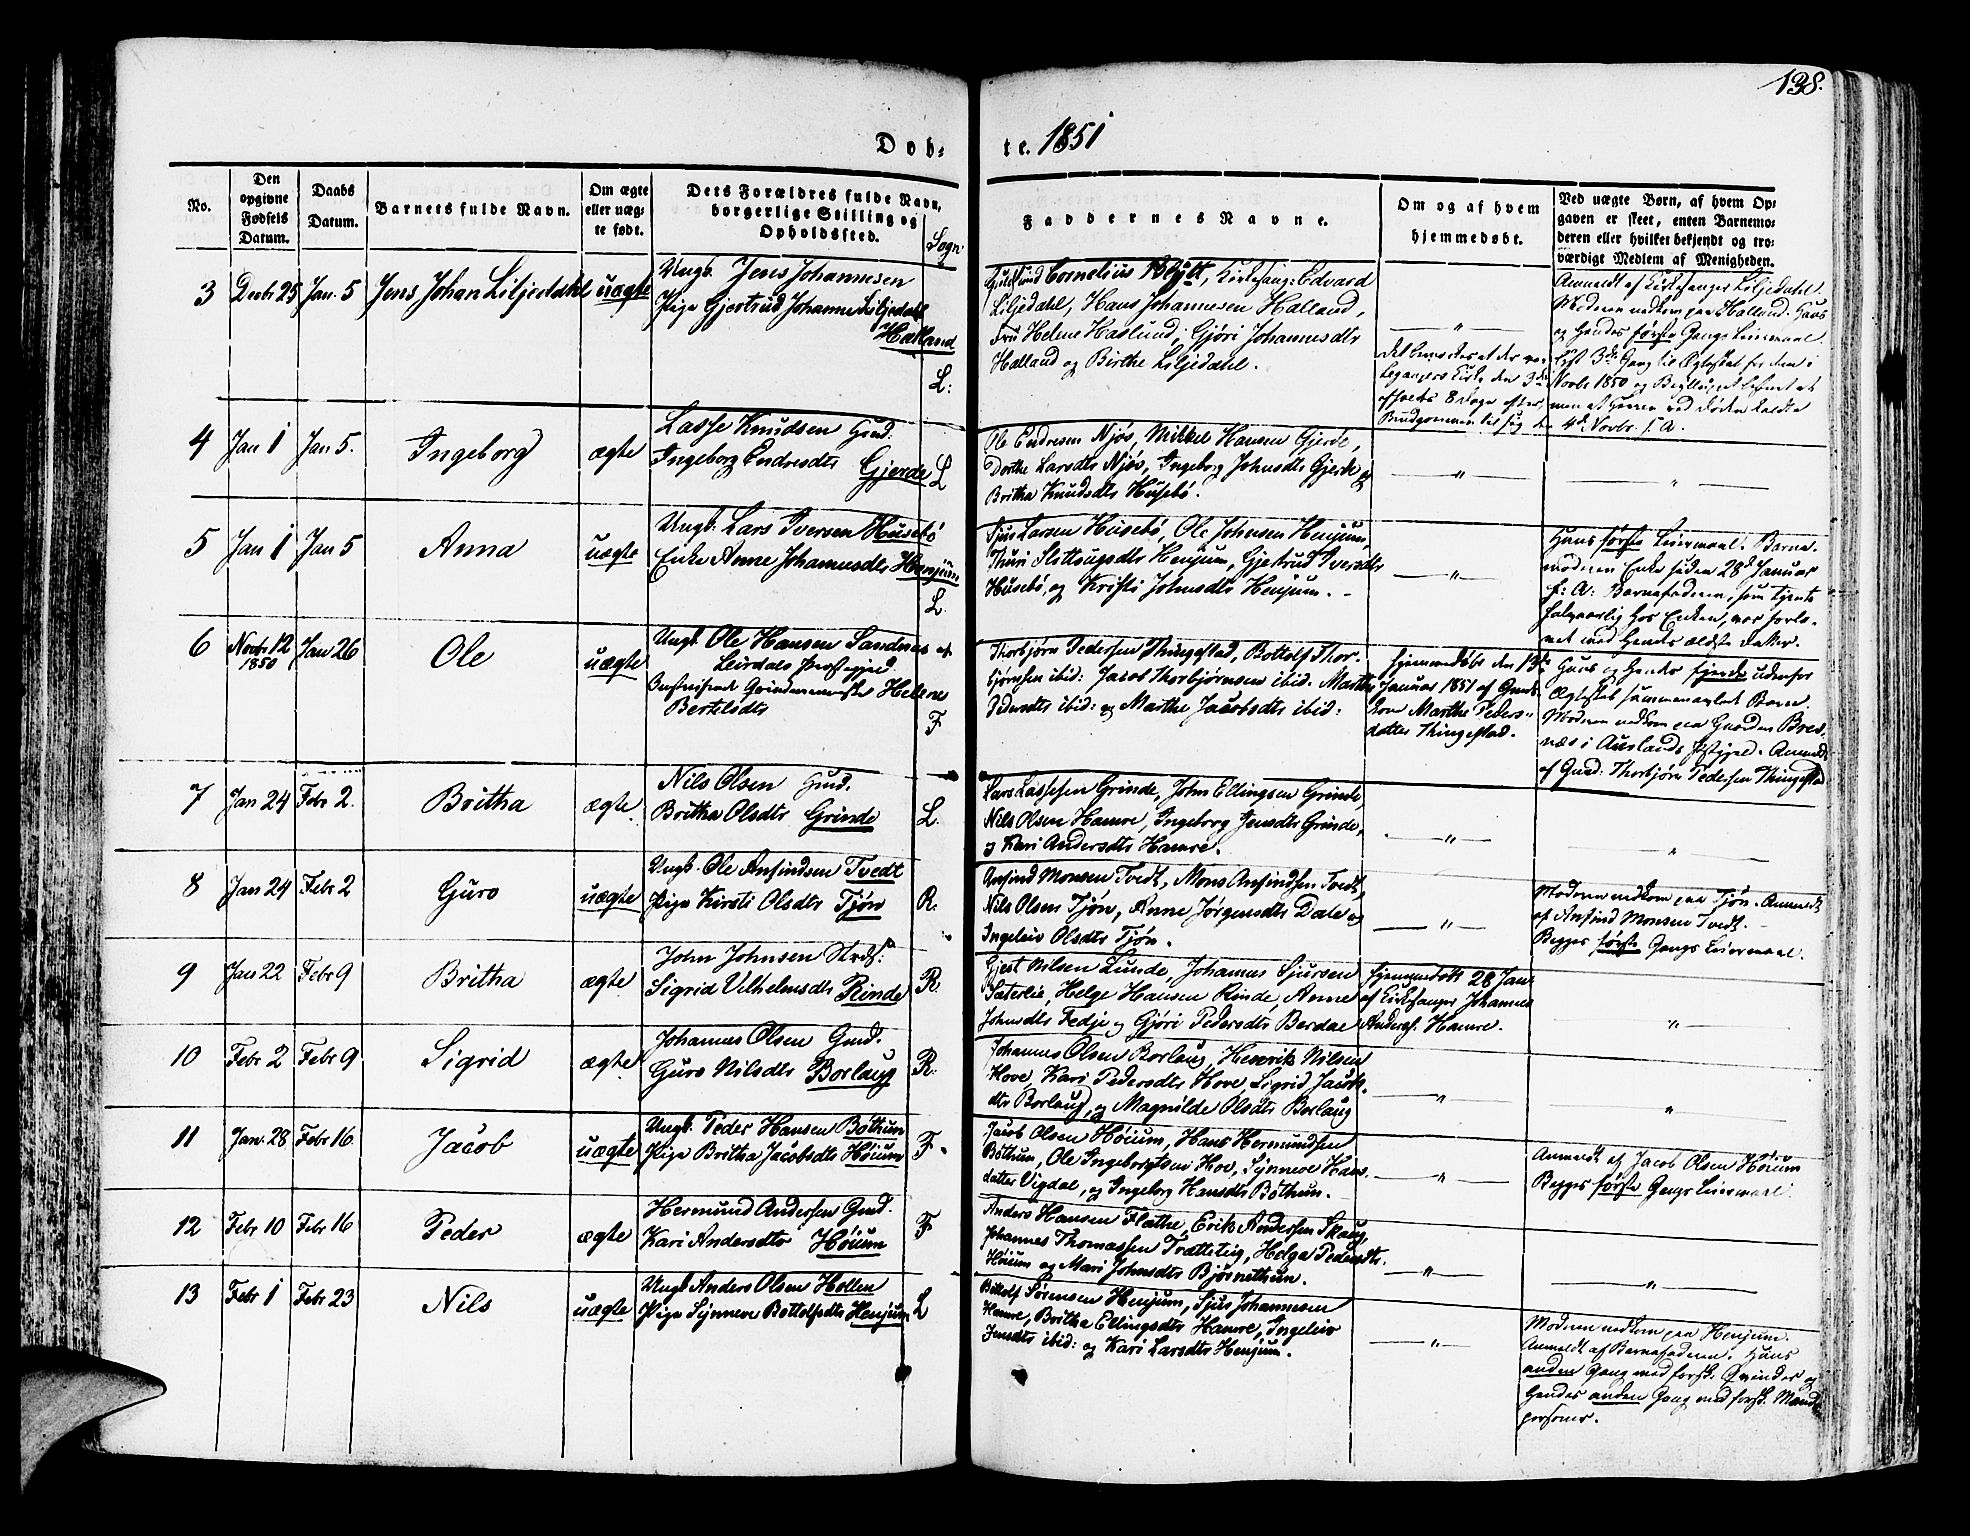 138.
Døb-te. 1851
No.
Den opgivne Fødsels Datum.
Daabs Datum.
Barnets fulde Navn.
Om ægte eller uægte født.
Dets Forældres fulde Navn, borgerlige Stilling og Opholdssted.
Sogn.
Faddernes Navne.
Om og af hvem hjemmedøbt.
Ved uægte Børn, af hvem Opgaven er skeet, enten Barnemoderen eller hvilket bekjendt og troværdigt Medlem af Menigheden.
3 Decbr 25 Jan. 5 Jens Johan Liljedahl uægte
Ungk. Jens Johannesen
Pige Gjertrud Johanne Liljedahl
Halland
L:
Cornelius Blytt, Kirkesang. Edvard
Liljedahl, Hans Johannesen Halland,
Fru Helene Haslund, Gjøri Johannesdtr
Halland og Birthe Liljedahl.
"
Anmeldt af Kirkesanger Liljedahl.
Moderen nedkom paa Halland. Hans
og Hendes første Gangs Leiermaal.
4 Jan 1 Jan 5. Ingeborg ægte
Lasse Knudsen Gmd.
Ingeborg Endresdtr Gjerde L
Ole Endresen Njøs, Mikkel Hansen Gjerde,
Dorthe Larsdtr Njøs, Ingeborg Johnsdtr Gjerde og
Britha Knudsdtr Husebö.
"
"
5 Jan 1 Jan 5 Anna uægte
Ungk. Lars Iversen Husebö
Enke Anne Johannesdtr Henjum
L.
Sjur Larsen Husebö, Ole Johnsen Henjum,
Thuri Slettaugsdtr Henjum, Gjertrud Iversdtr
Husebö, og Kristi Johnsdtr Henjum.
"
Hans første Leiermaal. Barne-
moderen Enke siden 28de Januar
f: A: Barnefaderen, som tjente
hos Enken, var forlo-
vet med Hendes ældste Datter.
6 Novbr 12 1850 Jan 26 Ole uægte
Ungk. Ole Hansen Sandnes af
Leirdals Præstegjeld
Hellene
Bertelsdtr
F
Thorbjørn Pedersen Thingestad, Bottolf Thor-
bjørnsen ibid: Jacob Thorbjørnsen ibid. Marthe
Pedersdtr ibid: og Marthe Jacobsdtr ibid:
Hjemmedøbt den 13de
Januar 1851 af Gmds
kone Marthe Peders-
datter Thingestad.
Hans og Hendes fjerde udenfor
Ægteskab sammenavlet Barn.
Moderen nedkom paa Gaarden Bres-
næs i Aurlands Præstgjæld. Anmeldt
af Gmd: Thorbjørn Pedersen Thingestad
7 Jan 24 Febr 2. Britha ægte
Nils Olsen Gmd.
Britha Olsdtr Grinde L.
Lars Lassesen Grinde, John Ellingsen Grinde,
Nils Olsen Hamre, Ingeborg Jensdtr Grinde,
og Kari Andersdtr Hamre.
"
"
8 Jan 24 Febr 2 Guro uægte
Ungk. Ole Anfindsen Tvedt
Pige Kirsti Olsdtr Tjøn R.
Anfind Monsen Tvedt, Mons Anfindsen Tvedt,
Nils Olsen Tjøn, Anne Jørgensdtr Dale og
Ingeleiv Olsdtr Tjøn.
"
Moderen nedkom paa Tjøn. Anmeldt
af Anfind Monsen Tvedt.
Begges første Gangs Leiermaal.
9 Jan 22 Febr 9 Britha ægte
John Johnsen Hrds:
Sigrid Vilhelmsdtr Rinde R.
Gjest Nilsen Lunde, Johannes Sjursen
Sæterlie, Helge Hansen Rinde, Anne
Johnsdtr Fedje og Gjøri Pedersdtr Berdae
Hjemmedøbt 28 Jan
af Kirkesanger Johannes
Anders. Hamre.
"
10 Febr 2 Febr 9 Sigrid ægte
Johannes Olsen Gmd.
Guro Nilsdtr Borlaug R.
Johannes Olsen Borlaug, Henrik Nilsen
Hove, Kari Pedersdtr Hove, Sigrid Jacobs-
dtr Borlaug, og Magnilde Olsdtr Borlaug
"
"
11 Jan. 28 Febr 16 Jacob uægte
Ungk. Peder Hansen Bøthum
Pige Britha Jacobsdtr Høium F.
Jacob Olsen Høium, Hans Hermundsen
Bøthum, Ole Ingebrigtsen Hov, Synneve Hans-
datter Vigdal, og Ingeborg Hansdtr Bøthum.
"
Anmeldt af Jacob Olsen Høium
Begges første Gangs Leiermaal.
12 Febr 10 Febr 16 Peder ægte
Hermund Andersen Gmd.
Kari Andersdtr Høium F
Anders Hansen Flathe, Erik Andersen Skaug,
Johannes Thomassen Trætteteig, Helga Pedersdtr.
Høium og Mari Johnsdtr Bjørnethun.
"
"
13 Febr 1 Febr 23 Nils uægte
Ungk Anders Olsen Hollen
Pige Synneve Bottolfsdtr Henjum L
Bottolf Sørensen Henjum, Sjur Johannesen
Hamre, Britha Ellingsdtr Hamre, Ingeleiv
Jensdtr ibid: og Kari Larsdtr Henjum.
"
Moderen nedkom paa Henjum.
Anmeldt af Barnefaderen. Hans
anden Gang med forsk. Qvinder og
Hendes anden Gang med forsk. Mands-
personer.